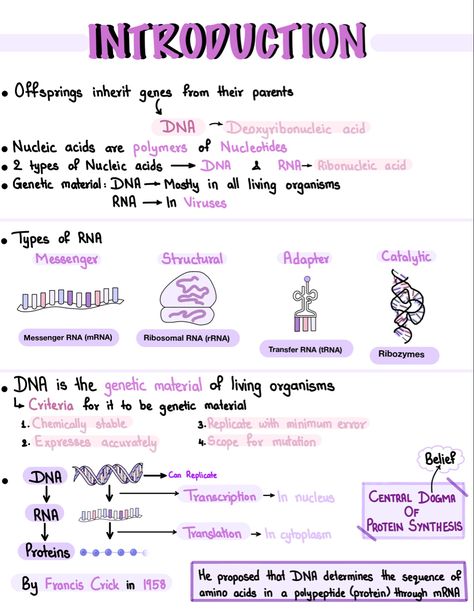 INTRODUCTION
• Offsprings inherit genes from their parents
DNA → Deoxyribonucleic acid
• Nucleic acids are polymers of Nucleotides
• 2 types of Nucleic acids → DNA & RNA → Ribonucleic acid
• Genetic material: DNA → Mostly in all living organisms
RNA → In Viruses
• Types of RNA
Messenger Structural Adapter Catalytic
Messenger RNA (mRNA) Ribosomal RNA (rRNA) Transfer RNA (tRNA) Ribozymes
• DNA is the genetic material of living organisms
↳ Criteria for it to be genetic material
1. Chemically stable 3. Replicate with minimum error
2. Expresses accurately 4. Scope for mutation
• DNA → Can Replicate
Transcription → In nucleus
RNA
Translation → In cytoplasm
Proteins
Belief
CENTRAL DOGMA
OF
PROTEIN SYNTHESIS
By Francis Crick in 1958
He proposed that DNA determines the sequence of
amino acids in a polypeptide (protein) through mRNA